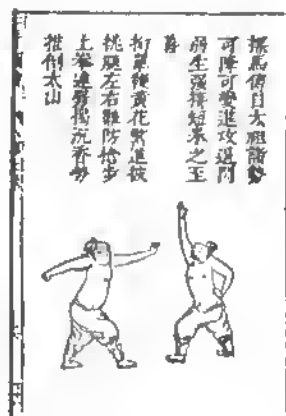 探馬傳自太祖諸勢
可降可變進攻退閃
弱生強接短拳之至
善
拗單鞭黃花緊進披
挑腿左右難防搶步
上拳連劈揭沉香勢
推倒太山